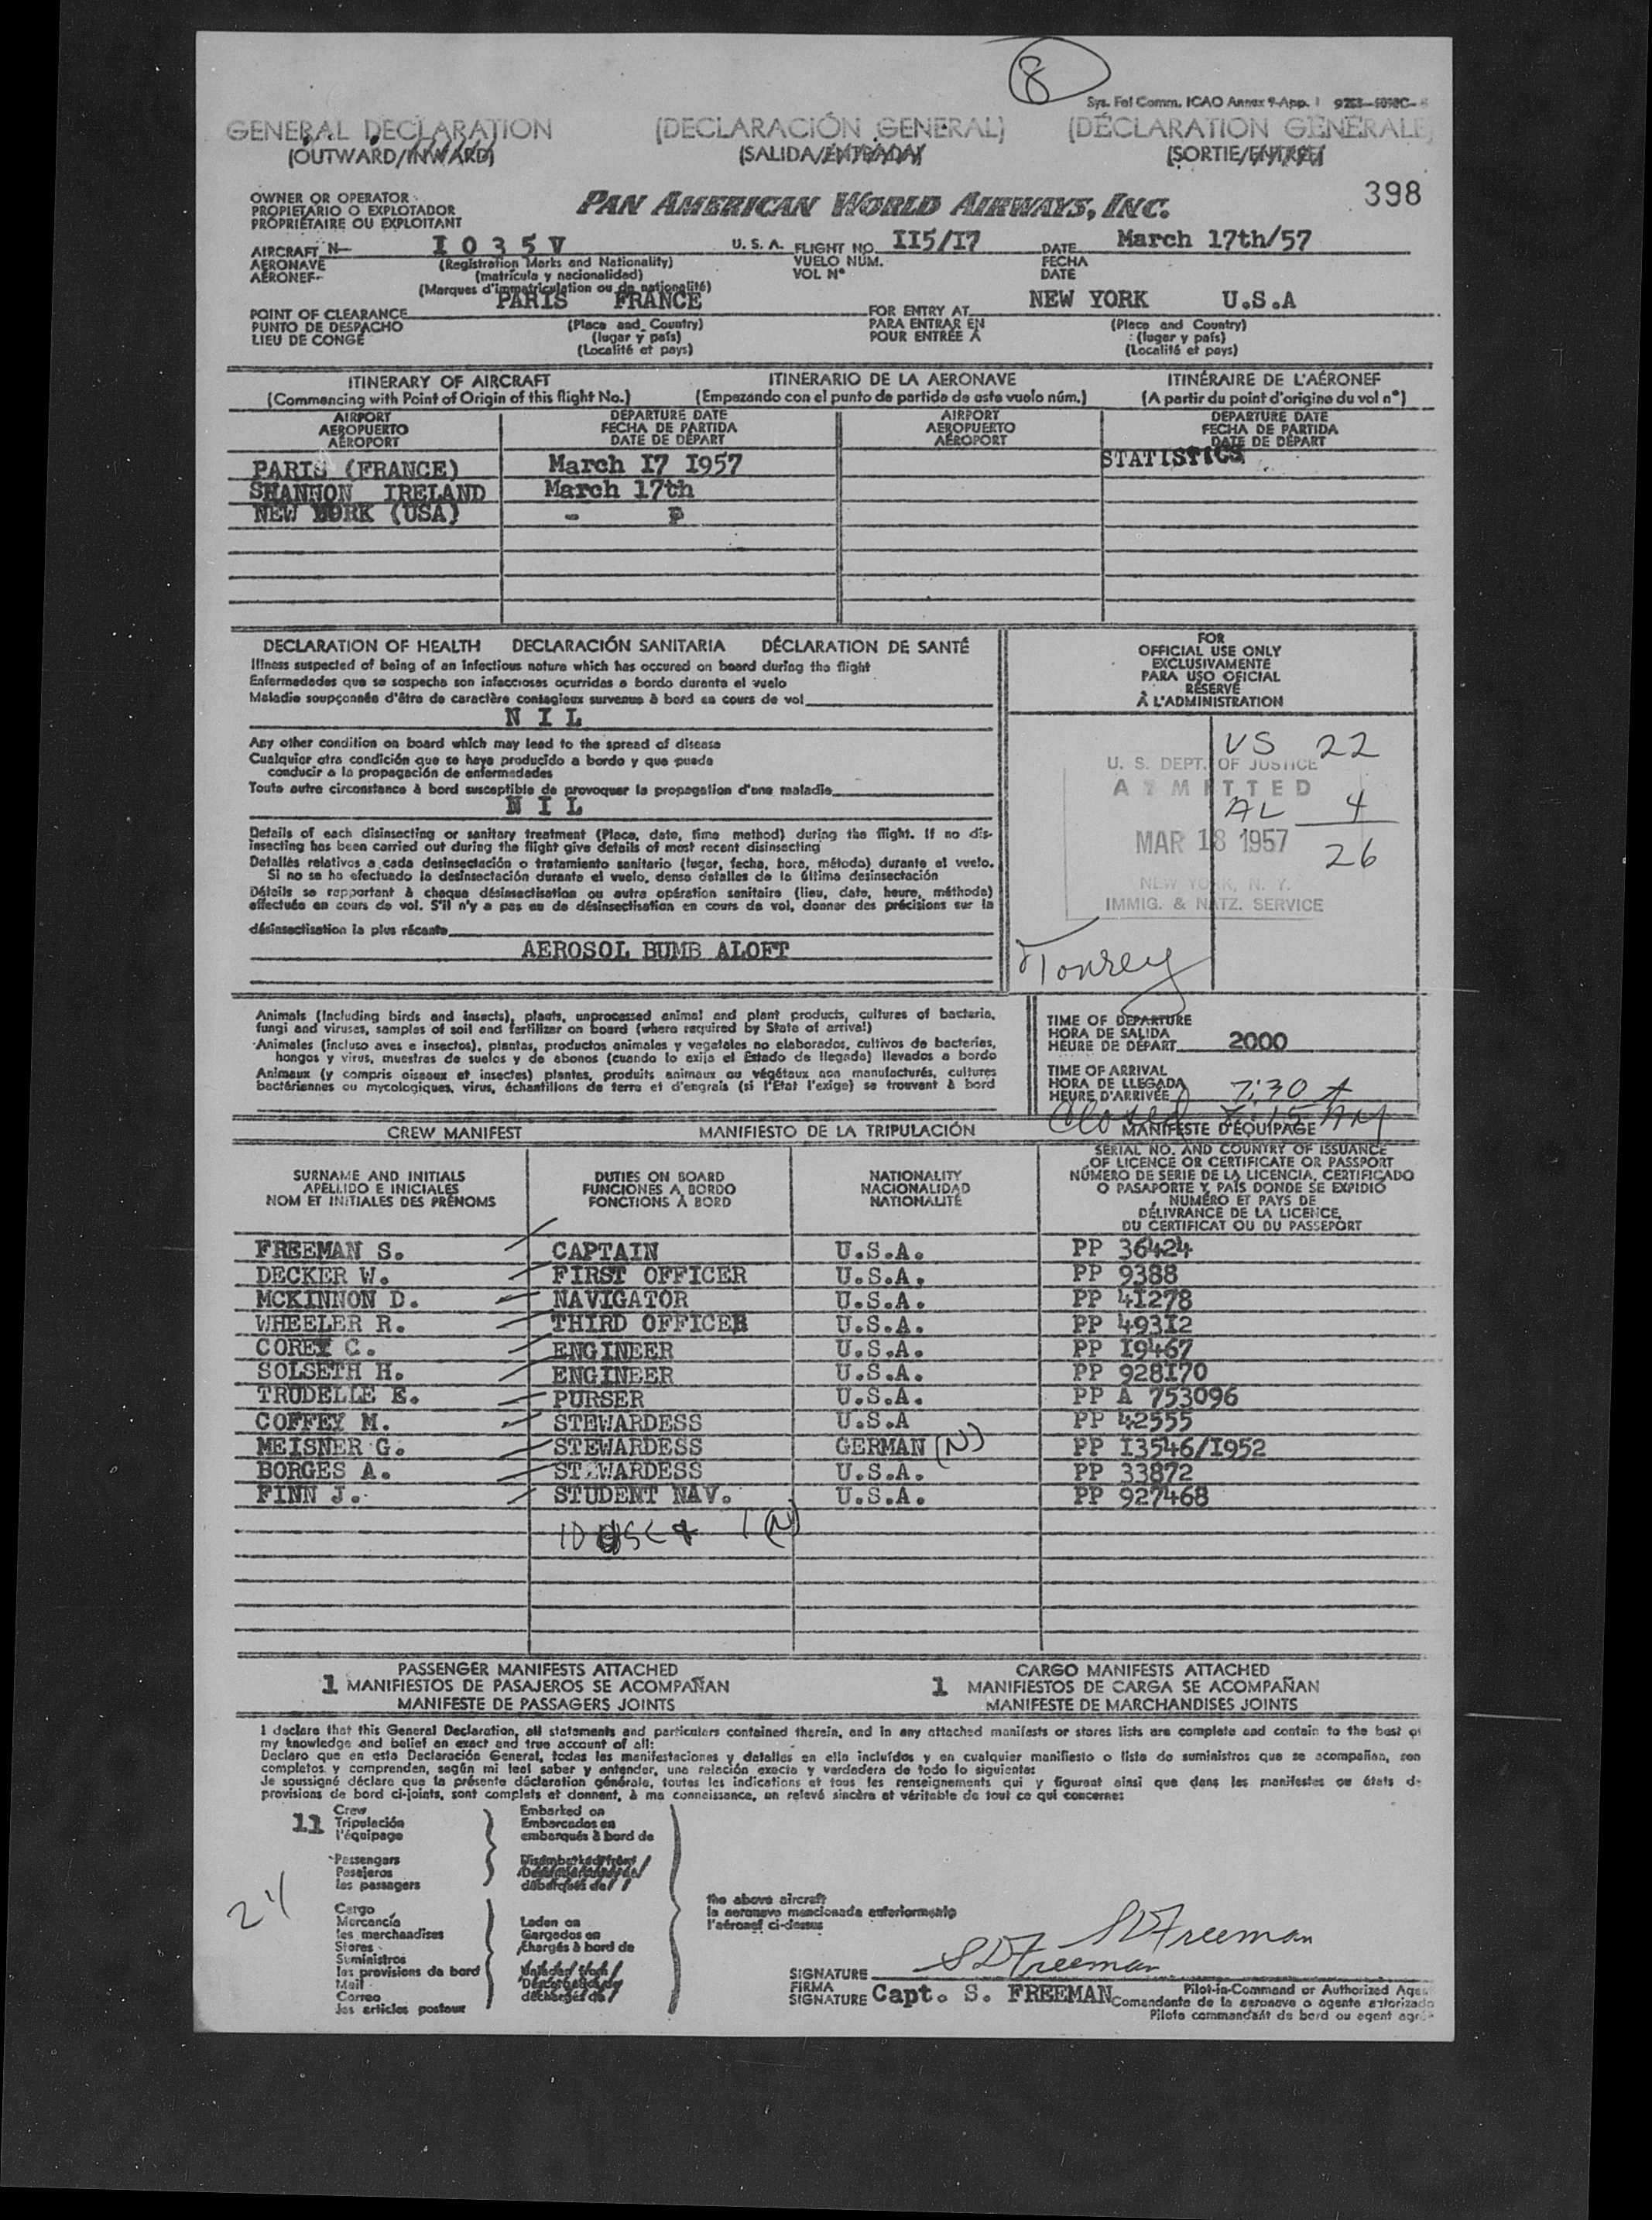 8
Sys. Fel Comm. ICAO Annex 9-App. I
GENERAL DECLARATION (DECLARACIÓN GENERAL) (DÉCLARATION GÉNÉRALE)
(OUTWARD/INWARD) (SALIDA/ENTRADA) (SORTIE/ENTRÉE)
OWNER OR OPERATOR
PROPIETARIO O EXPLOTADOR
PROPRIÉTAIRE OU EXPLOITANT
PAN AMERICAN WORLD AIRWAYS, INC.
398
AIRCRAFT N- I 0 3 5 V U. S. A. FLIGHT NO. II5/I7 DATE March 17th/57
AERONAVE (Registration Marks and Nationality) VUELO NÚM. FECHA
AÉRONEF (matrícula y nacionalidad) VOL Nº DATE
(Marques d'immatriculation ou de nationalité)
PARIS FRANCE NEW YORK U.S.A
POINT OF CLEARANCE FOR ENTRY AT
PUNTO DE DESPACHO (Place and Country) PARA ENTRAR EN (Place and Country)
LIEU DE CONGÉ (lugar y país) POUR ENTRÉE À (lugar y país)
(Localité et pays) (Localité et pays)
ITINERARY OF AIRCRAFT ITINERARIO DE LA AERONAVE ITINÉRAIRE DE L'AÉRONEF
(Commencing with Point of Origin of this flight No.) (Empezando con el punto de partida de este vuelo núm.) (A partir du point d'origine du vol nº)
AIRPORT DEPARTURE DATE AIRPORT DEPARTURE DATE
AEROPUERTO FECHA DE PARTIDA AEROPUERTO FECHA DE PARTIDA
AÉROPORT DATE DE DÉPART AÉROPORT DATE DE DÉPART
PARIS (FRANCE) March I7 I957 STATISTICS
SHANNON IRELAND March 17th
NEW YORK (USA) - P
DECLARATION OF HEALTH DECLARACIÓN SANITARIA DÉCLARATION DE SANTÉ
Illness suspected of being of an infectious nature which has occured on board during the flight
Enfermedades que se sospecha son infecciosas ocurridas a bordo durante el vuelo
Maladie soupçonnée d'être de caractère contagieux survenue à bord en cours de vol
N I L
Any other condition on board which may lead to the spread of disease
Cualquier otra condición que se haya producido a bordo y que puede
conducir a la propagación de enfermedades
Toute autre circonstance à bord susceptible de provoquer la propagation d'une maladie
N I L
Details of each disinsecting or sanitary treatment (Place, date, time method) during the flight. If no dis-
insecting has been carried out during the flight give details of most recent disinsecting
Detalles relativos a cada desinsectación o tratamiento sanitario (lugar, fecha, hora, método) durante el vuelo.
Si no se ha efectuado la desinsectación durante el vuelo, dense detalles de la última desinsectación
Détails se rapportant à chaque désinsectisation ou autre opération sanitaire (lieu, date, heure, méthode)
effectuée en cours de vol. S'il n'y a pas eu de désinsectisation en cours de vol, donner des précisions sur la
désinsectisation la plus récente
AEROSOL BUMB ALOFT
FOR
OFFICIAL USE ONLY
EXCLUSIVAMENTE
PARA USO OFICIAL
RÉSERVÉ
À L'ADMINISTRATION
VS 22
U. S. DEPT. OF JUSTICE
ADMITTED
AL 4
MAR 18 1957
26
NEW YORK, N. Y.
IMMIG. & NATZ. SERVICE
Animals (Including birds and insects), plants, unprocessed animal and plant products, cultures of bacteria,
fungi and viruses, samples of soil and fertilizer on board (where required by State of arrival)
Animales (incluso aves e insectos), plantas, productos animales y vegetales no elaborados, cultivos de bacterias,
hongos y virus, muestras de suelos y de abonos (cuando lo exija el Estado de llegada) llevados a bordo
Animaux (y compris oiseaux et insectes) plantes, produits animaux ou végétaux non manufacturés, cultures
bactériennes ou mycologiques, virus, échantillons de terre et d'engrais (si l'Etat l'exige) se trouvant à bord
TIME OF DEPARTURE
HORA DE SALIDA
HEURE DE DÉPART 2000
TIME OF ARRIVAL
HORA DE LLEGADA
HEURE D'ARRIVÉE 7:30 A
Closed 8:15 AM
CREW MANIFEST MANIFIESTO DE LA TRIPULACIÓN MANIFESTE D'ÉQUIPAGE
SURNAME AND INITIALS
APELLIDO E INICIALES
NOM ET INITIALES DES PRÉNOMS
DUTIES ON BOARD
FUNCIONES A BORDO
FONCTIONS À BORD
NATIONALITY
NACIONALIDAD
NATIONALITÉ
SERIAL NO. AND COUNTRY OF ISSUANCE
OF LICENCE OR CERTIFICATE OR PASSPORT
NÚMERO DE SERIE DE LA LICENCIA, CERTIFICADO
O PASAPORTE Y PAÍS DONDE SE EXPIDIÓ
NUMÉRO ET PAYS DE
DÉLIVRANCE DE LA LICENCE,
DU CERTIFICAT OU DU PASSEPORT
FREEMAN S. CAPTAIN U.S.A. PP 36424
DECKER W. FIRST OFFICER U.S.A. PP 9388
MCKINNON D. NAVIGATOR U.S.A. PP 4I278
WHEELER R. THIRD OFFICER U.S.A. PP 493I2
COREY C. ENGINEER U.S.A. PP I9467
SOLSETH H. ENGINEER U.S.A. PP 928I70
TRUDELLE E. PURSER U.S.A. PP A 753096
COFFEY M. STEWARDESS U.S.A PP 42555
MEISNER G. STEWARDESS GERMAN (N) PP I3546/I952
BORGES A. STEWARDESS U.S.A. PP 33872
FINN J. STUDENT NAV. U.S.A. PP 927468
10 USC & 1 (N)
PASSENGER MANIFESTS ATTACHED CARGO MANIFESTS ATTACHED
1 MANIFIESTOS DE PASAJEROS SE ACOMPAÑAN 1 MANIFIESTOS DE CARGA SE ACOMPAÑAN
MANIFESTE DE PASSAGERS JOINTS MANIFESTE DE MARCHANDISES JOINTS
I declare that this General Declaration, all statements and particulars contained therein, and in any attached manifests or stores lists are complete and contain to the best of
my knowledge and belief an exact and true account of all:
Declaro que en esta Declaración General, todas las manifestaciones y detalles en ella incluídos y en cualquier manifiesto o lista de suministros que se acompañan, son
completos y comprenden, según mi leal saber y entender, una relación exacta y verdadera de todo lo siguiente:
Je soussigné déclare que la présente déclaration générale, toutes les indications et tous les renseignements qui y figurent ainsi que dans les manifestes ou états de
provisions de bord ci-joints, sont complets et donnent, à ma connaissance, un relevé sincère et véritable de tout ce qui concerne:
11
Crew
Tripulación
l'équipage
Embarked on
Embarcados en
embarqués à bord de
Passengers
Pasajeros
les passagers
Disembarked from
débarqués de
24
Cargo
Mercancía
les marchandises
Stores
Suministros
les provisions de bord
Mail
Correo
les articles postaux
Laden on
Cargados en
chargés à bord de
Unladen from
Descargados de
déchargés de
the above aircraft
la aeronave mencionada anteriormente
l'aéronef ci-dessus
SDFreeman
SIGNATURE SDFreeman
FIRMA
SIGNATURE Capt. S. FREEMAN
Pilot-in-Command or Authorized
Comandante de la aeronave o agente autorizado
Pilote commandant de bord ou agent